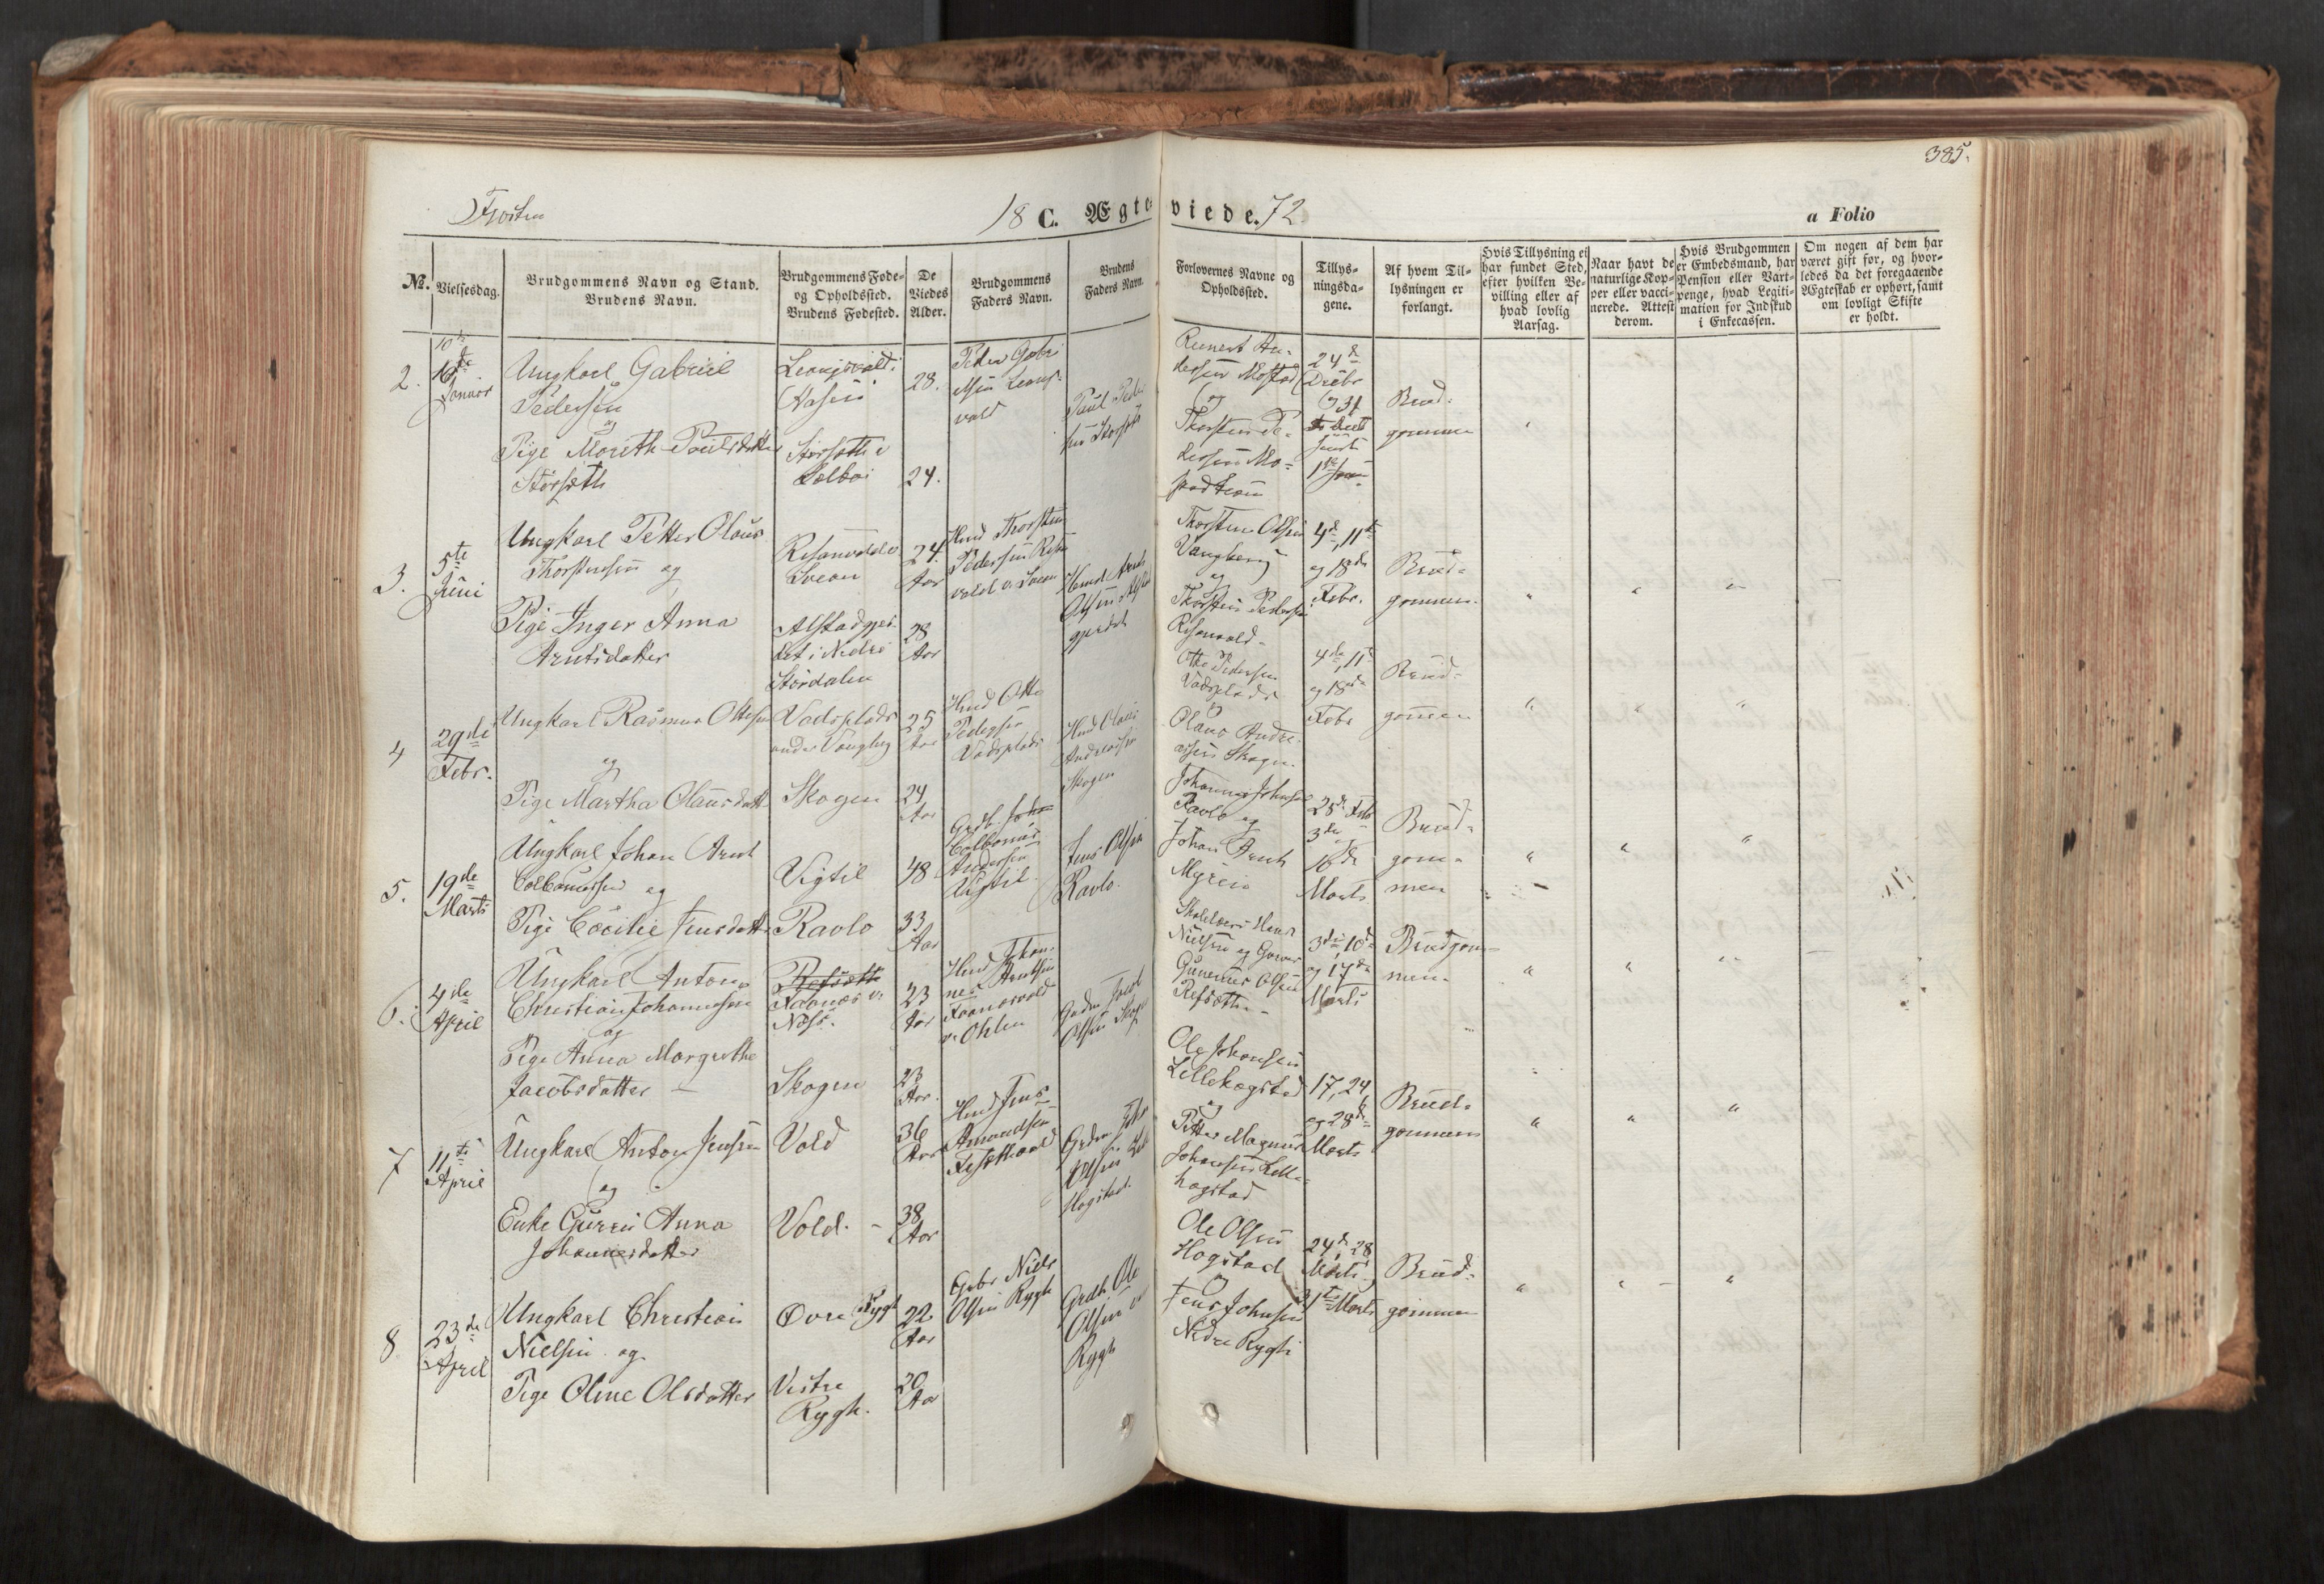 385.
Frosten 18 C. Ægteviede. 72 a Folio
No.
Vielsesdag.
Brudgommens Navn og Stand.
Brudens Navn.
Brudgommens Føde-
og Opholdssted.
Brudens Fødested.
De
Viedes
Alder.
Brudgommens
Faders Navn.
Brudens
Faders Navn.
Forlovernes Navne og
Opholdssted.
Tillys-
ningsda-
gene.
Af hvem Til-
lysningen er
forlangt.
Hvis Tillysning ei
har fundet Sted,
efter hvilken Be-
villing eller af
hvad lovlig
Aarsag.
Naar havt de
naturlige Kop-
per eller vacci-
nerede. Attest
derom.
Hvis Brudgommen
er Embedsmand, har
Pension eller Vart-
penge, hvad Legiti-
mation for Indskud
i Enkecassen.
Om nogen af dem har
været gift før, og hvor-
ledes da det foregaaende
Ægteskab er ophørt, samt
om lovligt Skifte
er holdt.
2.
Januar
Ungkarl Gabriel
Pedersen
og
Pige Marith Paulsdatter
Storsæth
Aasen
Storsæth i
Sælbo
28.
24.
Peder Gabri
elsen
vold
Paul Peder
sen Storsæth
Reinert An-
dersen Mostad
og
Thorsten Pe-
dersen Mo-
stadtrøen
24de
Decbr
31
Brud-
gommen
3.
5te
Juni
Ungkarl Petter Olaus
Thorstensen og
Pige Inger Anna
Arntsdatter
Risanvald v
Svean
Alstadgjer-
det i Nedre
Stördalen
24.
Aar
28
Aar
Hmd Thorsten
Pedersen Risan
vald v. Svean
Hmd Arnt
Olsen Alstad
gjerdet
Thorsten Olsen
Vangberg
og
Thorsten Pedersen
Risanvald-
4de, 11te
og 18de
Febr.
Brud-
gommen.
4
29de
Febr.
Ungkarl Rasmus Ottesen
og
Pige Martha Olausdatt
Vadsplads
under Vangberg
Skogen
25
Aar
24
Aar
Hmd Otto
Pedersen
Vadsplads
Hmd Olaus
Andreassen
Skogen
Otto Pedersen
Vadsplads
og
Olaus Andre-
assen Skogen.
4de, 11te
og 18de
Febr
Brud-
gommen
5.
19de
Marts
Ungkarl Johan Arnt
Colbanussen og
Pige Cecilie Jensdatter
Vigtil
Ravlo
48
33
Aar
Grdb. Johan
Colbanus
Andersen
Vigtil.
Jens Olsen
Ravlo.
Johannes Johnsen
Ravlo og
Johan Arnt
Myreie
25de Feb
3de
10de
Marts
Brud-
gom-
men
6.
4de
April
Ungkarl Anton
Christian Johannessen
og
Pige Anna Margrethe
Jacobsdatter –
Refsæth
Faanæs v.
Næss.
Skogen
23
Aar
23
Aar.
Hmd Johan-
nes Arntsen
Faanæsvald
Jacob
Olsen Skogen
Skolelærer Hans
Nielsen og Gaardbr
Gunerius Olsen
Refsæth.-
3die, 10de
og 17de
Marts
Brudgom-
men-
7
11te
April
Ungkarl Anton Jensen
og
Enke Guren Anna
Johannesdatter
Vold
Vold. –
36
Aar
38
Aar
Hmd Jens
Amundsen
Olsen Lill
Hogstad.
Ole Johansen
Lillehogstad
og
Petter Magnus
Johansen Lille-
hogstad
17, 24,
og 28de
Marts
Brud-
gommen
8
23de
April
Ungkarl Christian
Nielsen og
Pige Oline Olsdatter
Øvre Rygh
Vestre
Rygh.
22
Aar
20
Aar
Gdbr Niels
Olsen Rygh
Grdb. Ole
Olsen v
Rygh
Ole Olsen
Hogstad
og
Jens Johnsen
Nedre Rygh
24de, 28
Marts,
31te Marts
Brud-
gommen